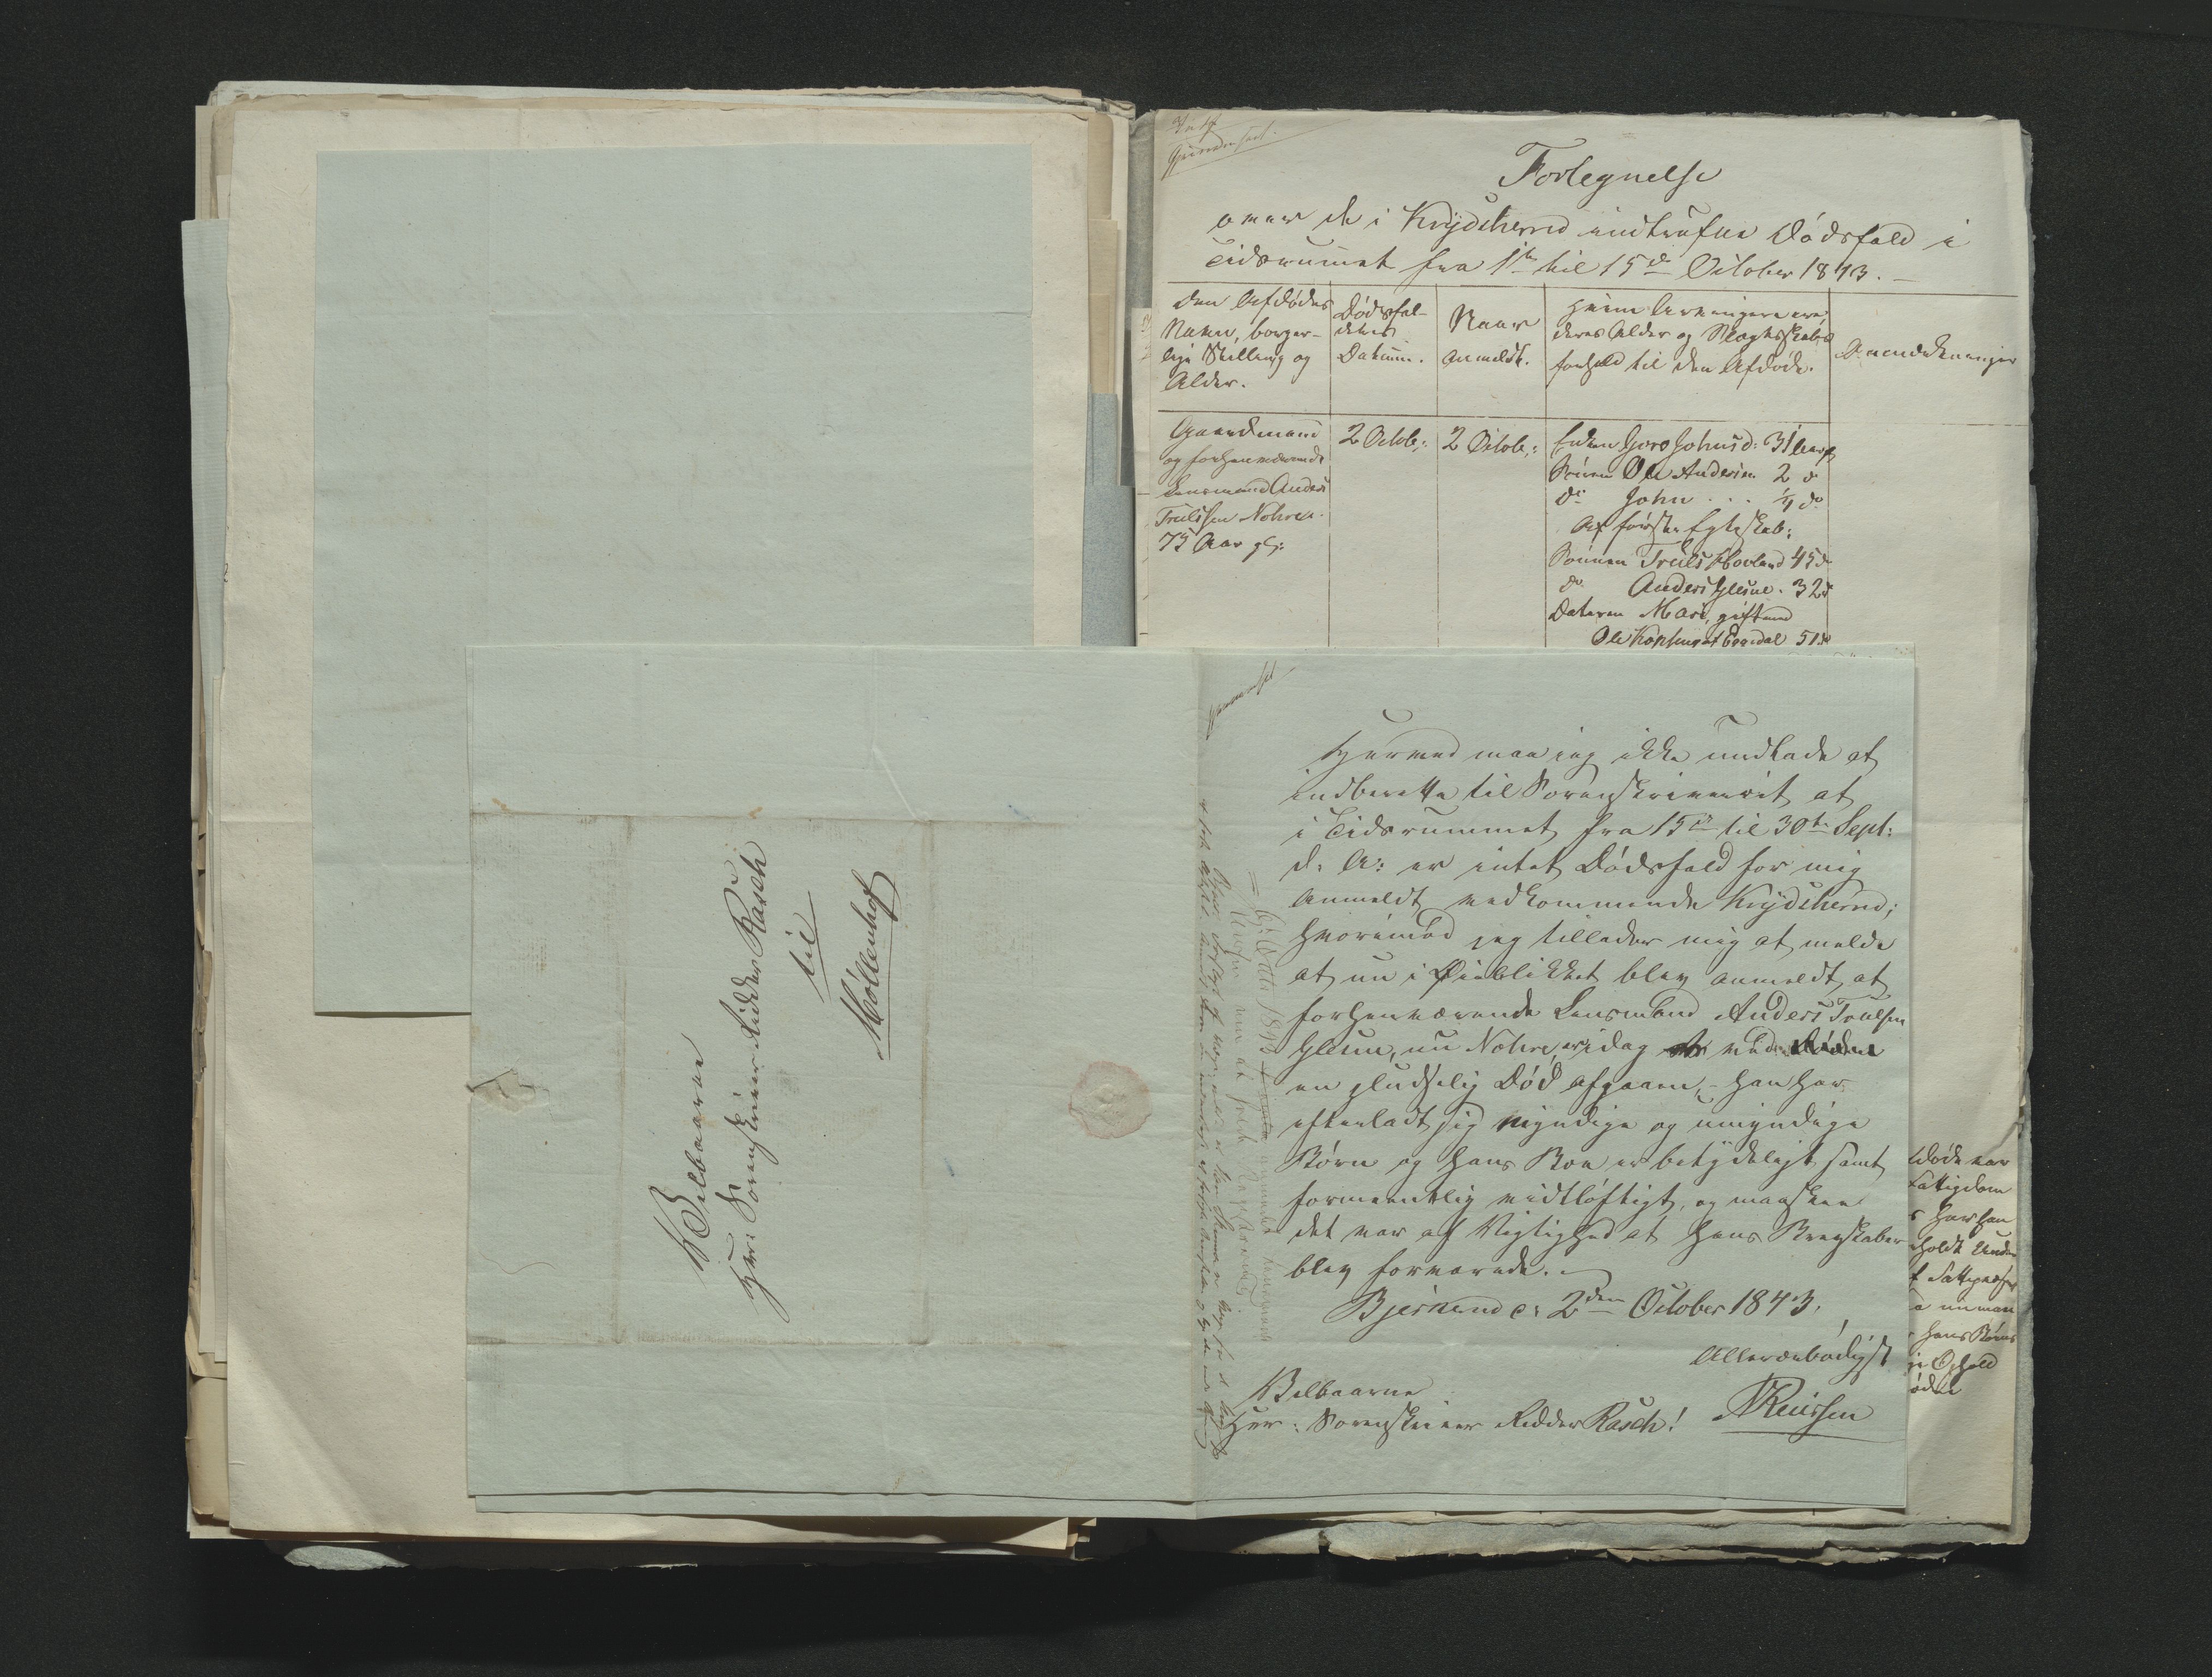 Fortegnelse
over de i Krydsherred indtrufne Dødsfald i
Tidsrummet fra 1ste til 15de October 1843.
Den Afdødes
Navn, borger-
lige Stilling og
Alder.
Dødsfal-
dets
Datum.
Naar
anmeldt.
Hvem Arvingerne ere,
deres Alder og Slægtskabs
forhold til den Afdøde.
Anmerkninger
Gaardmand
og forhenværende
Lensmand Anders
Trulssen Nohre.
75 Aar gl:
2 Octob:
2 Octob:
Enken Johnsd: 31 Aar gl
Sønnen Ole Andersen 2 do
do John . . . ¼ do
Af første Egteskab:
Sønnen Truls Hovland 45 do
do Anders Glesne. 32 do
Datteren Mari, gift med
Ole Eggedal 51 do
Hermed maa jeg ikke undlade at
indberette til Sorenskriveriet at
i Tidsrummet fra 15de til 30te Sept:
d. A: er intet Dødsfald for mig
anmeldt vedkommende Krydsherred;
hvorimod jeg tillader mig at melde
at nu i Øieblikket blev anmeldt, at
forhenværende Lensmand Anders Trulsen
Glesne, nu Nohre, er idag ved
en pludselig Død afgaaen, – han har
efterladt sig myndige og umyndige
Børn og hans Boe er betydeligt samt
formeentlig vidtløftigt, og maaskee
det var af Vigtighed at hans Regnskaber
blev forvarede. –
Bjerkerud d: 2den October 1843,
Allerærbødigst
Knissen
Velbaarne
Herr: Sorenskriver Ridder Rasch!
Velbaarne
Hr: Sorenskriver Ridder Rasch
til
Møllenhof
døde var
Fattigdom
har han
holdt Under
f Fattigvæsen
hans Børns
Ophold
øden